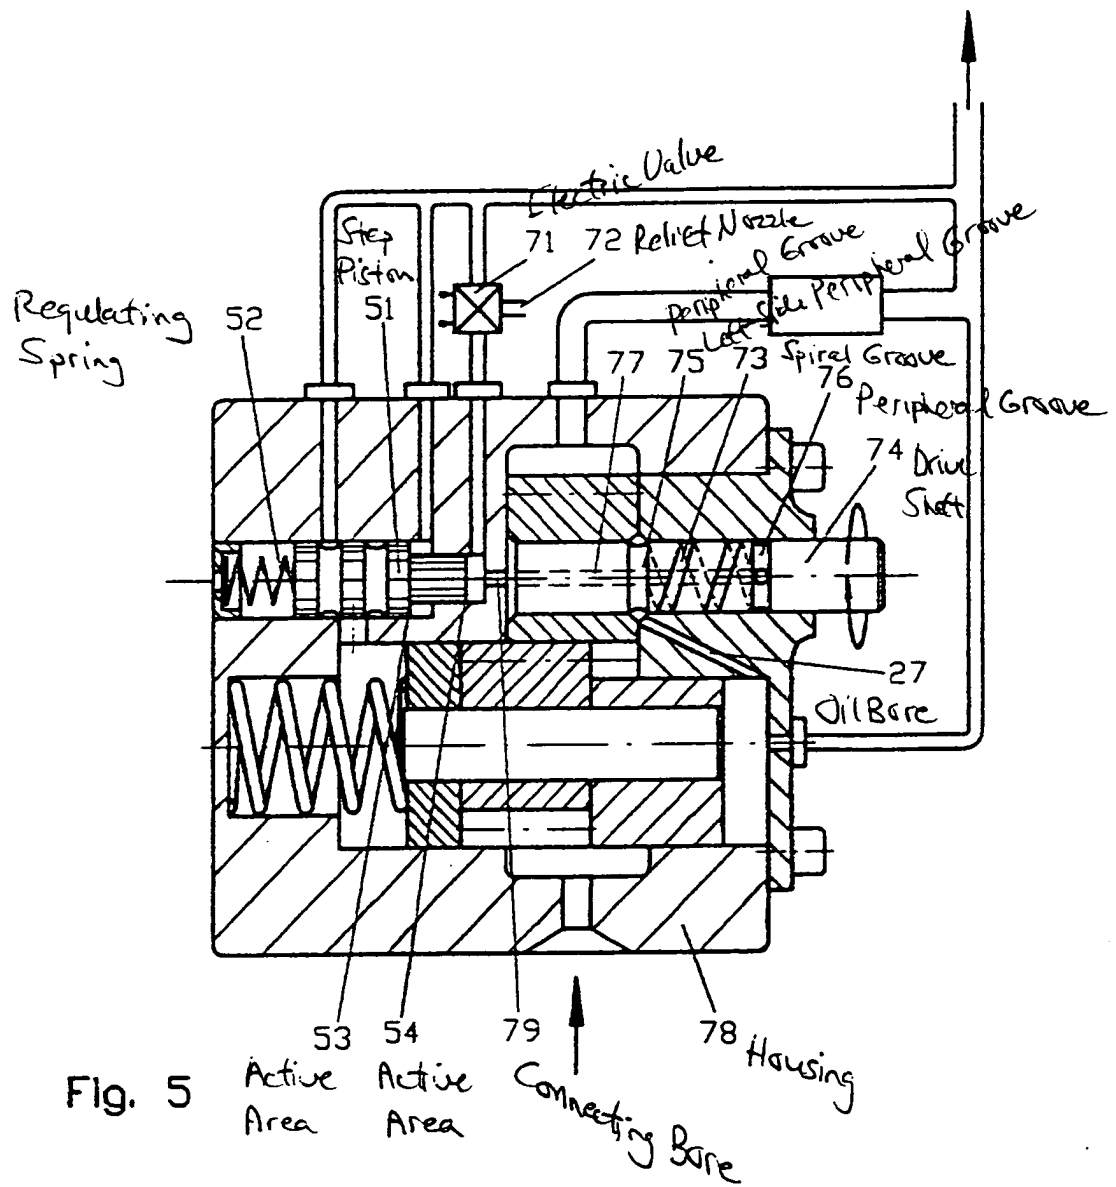 Electric Valve
Step
Piston
71
72 Relief Nozzle
Peripheral Groove
Left Side Peripheral Groove
Regulating
Spring
52
51
77
75
73
Spiral Groove
76
Peripheral Groove
74 Drive
Shaft
27
Oil Bore
53
54
79
78
Housing
Active
Area
Active
Area
Connecting Bore
Fig. 5